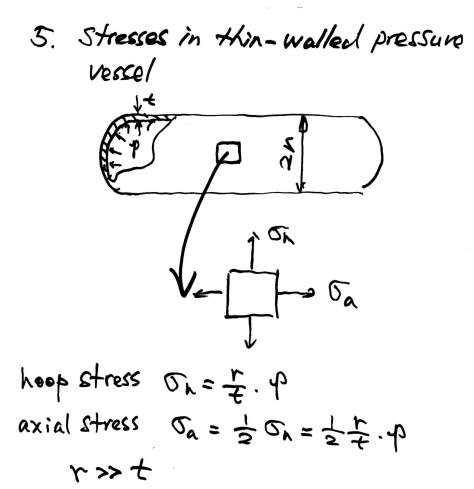 5. Stresses in thin-walled pressure
vessel
t
p
2r
σh
σa
hoop stress σh = r/t · p
axial stress σa = 1/2 σh = 1/2 r/t · p
r >> t